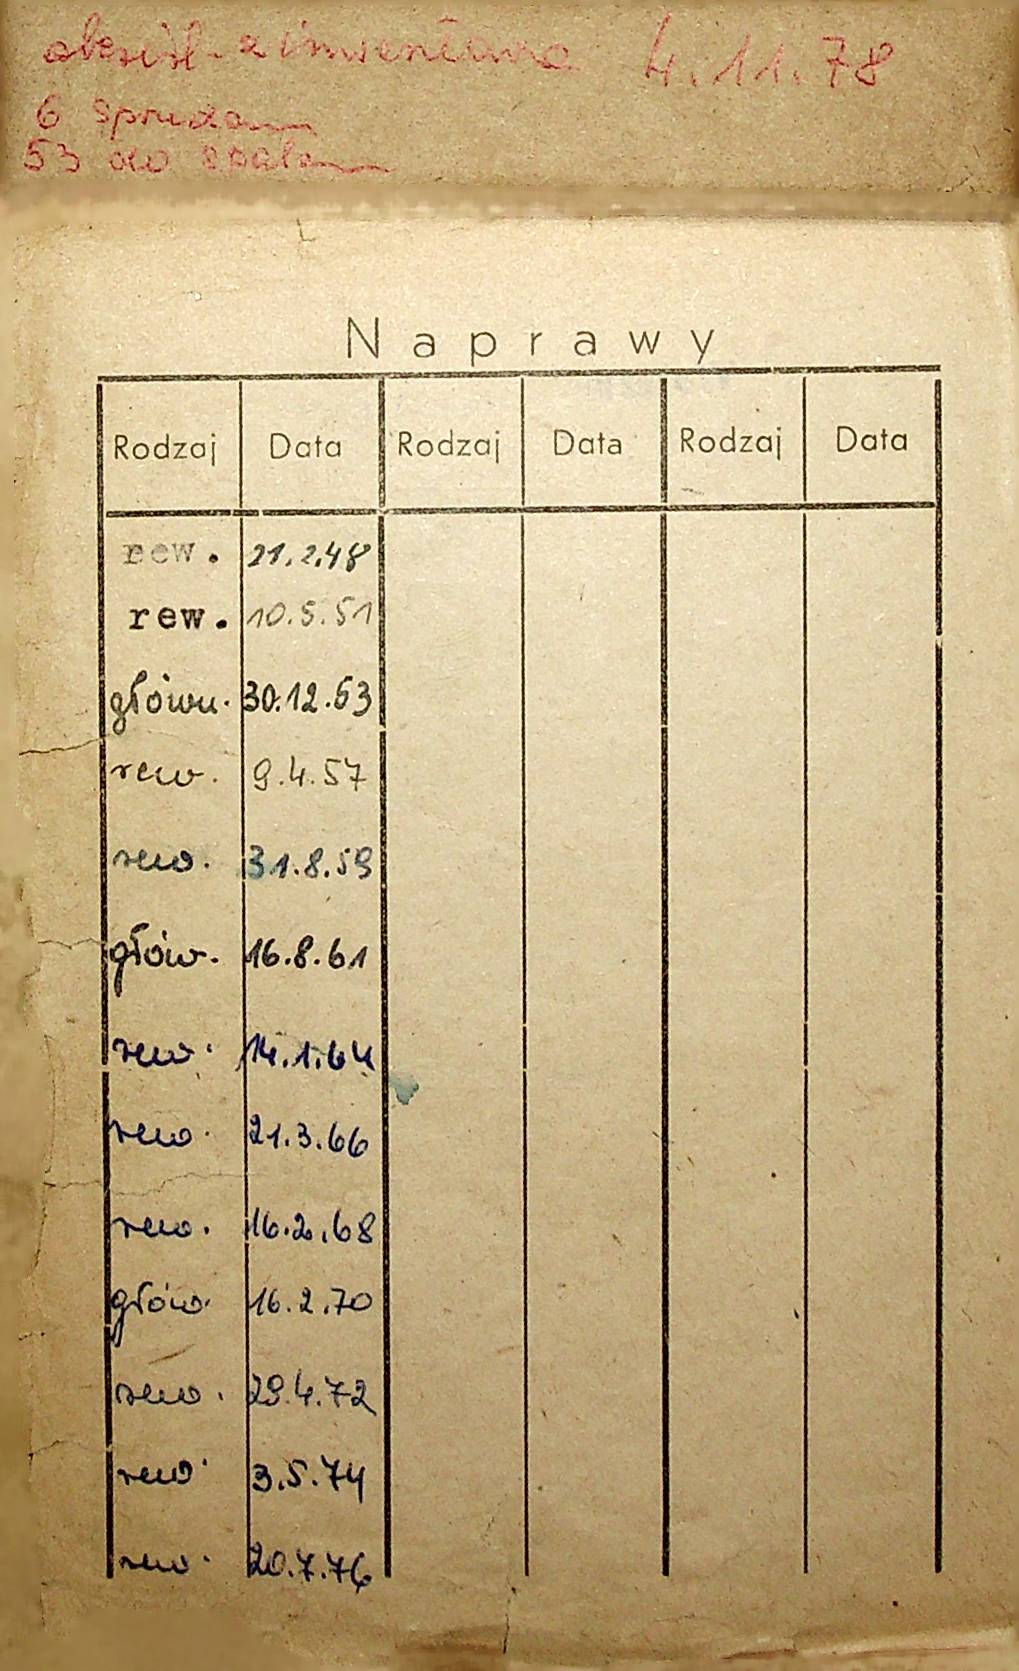 z inwentarza 4.11.78
6
53 do
Naprawy
Rodzaj Data Rodzaj Data Rodzaj Data
rew. 21.2.48
rew. 10.5.51
główn. 30.12.53
rew. 9.4.57
rew. 31.8.59
głów. 16.8.61
rew. 14.1.64
rew. 21.3.66
rew. 16.2.68
głów. 16.2.70
rew. 29.4.72
rew. 3.5.74
rew. 20.7.76